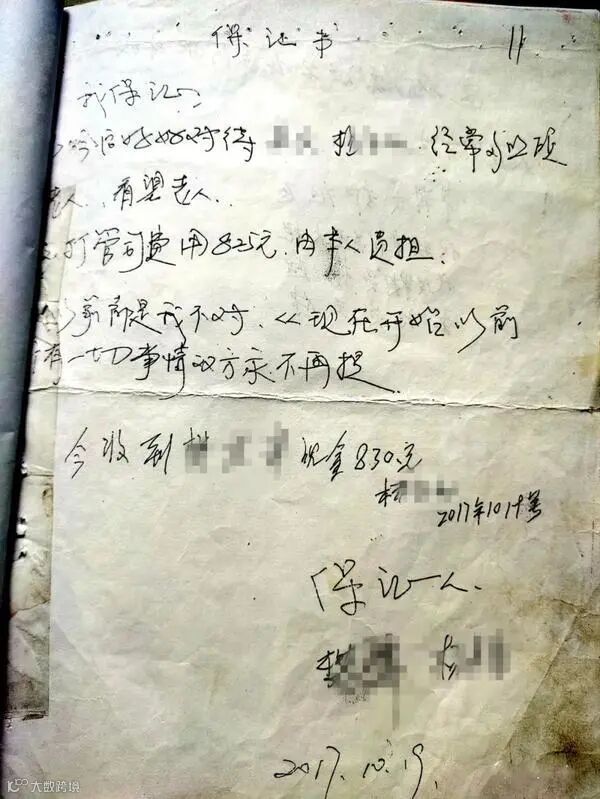 保证书
11
我保证:
今后好好对待 经常
老人、看望老人.
打官司费用825元.由本人
以前都是我不对、从现在开始以前
有一切事情双方永不再提
今收到 现金830元
2017年10月19号
保证人.
2017.10.19.
大数跨境